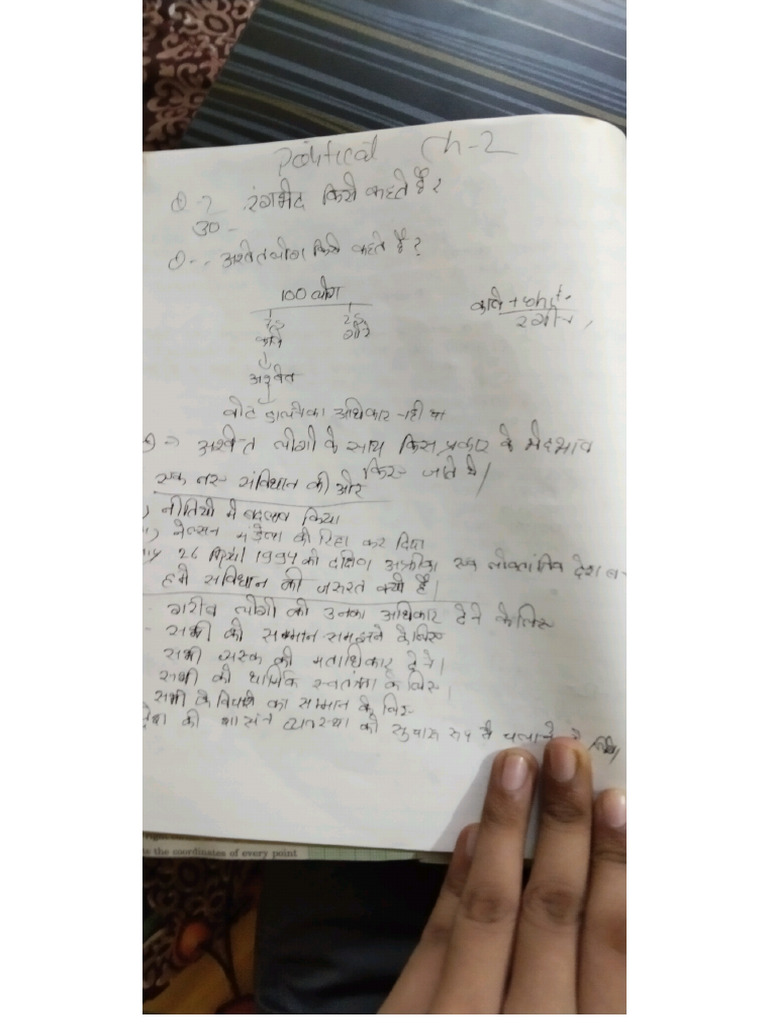 Political Ch-2
Q-2 रंगभेद किसे कहते है?
उ0-
Q-. अश्वेत लोग किसे कहते है?
100 लोग
75 25
काले गोरे
काले + white
रंगीन
अश्वेत
वोट डालने का अधिकार नही था
अश्वेत लोगो के साथ किस प्रकार के भेदभाव
किए जाते थे।
एक नए संविधान की ओर
नीतियो मे बदलाव किया
नेल्सन मंडेला को रिहा कर दिया
26 अप्रैल 1994 को दक्षिण अफ्रीका एक लोकतांत्रिक देश ब
हमे संविधान की जरूरत क्यो है।
गरीब लोगो को उनका अधिकार देने के लिए
सभी को सम्मान समझने के लिए
सभी व्यस्क को मताधिकार देने।
सभी की धार्मिक स्वतंत्रता के लिए।
सभी के विचारो का सम्मान के लिए
देश की शासन व्यवस्था को सुचारू रूप से चलाने के लिए।
is the coordinates of every point